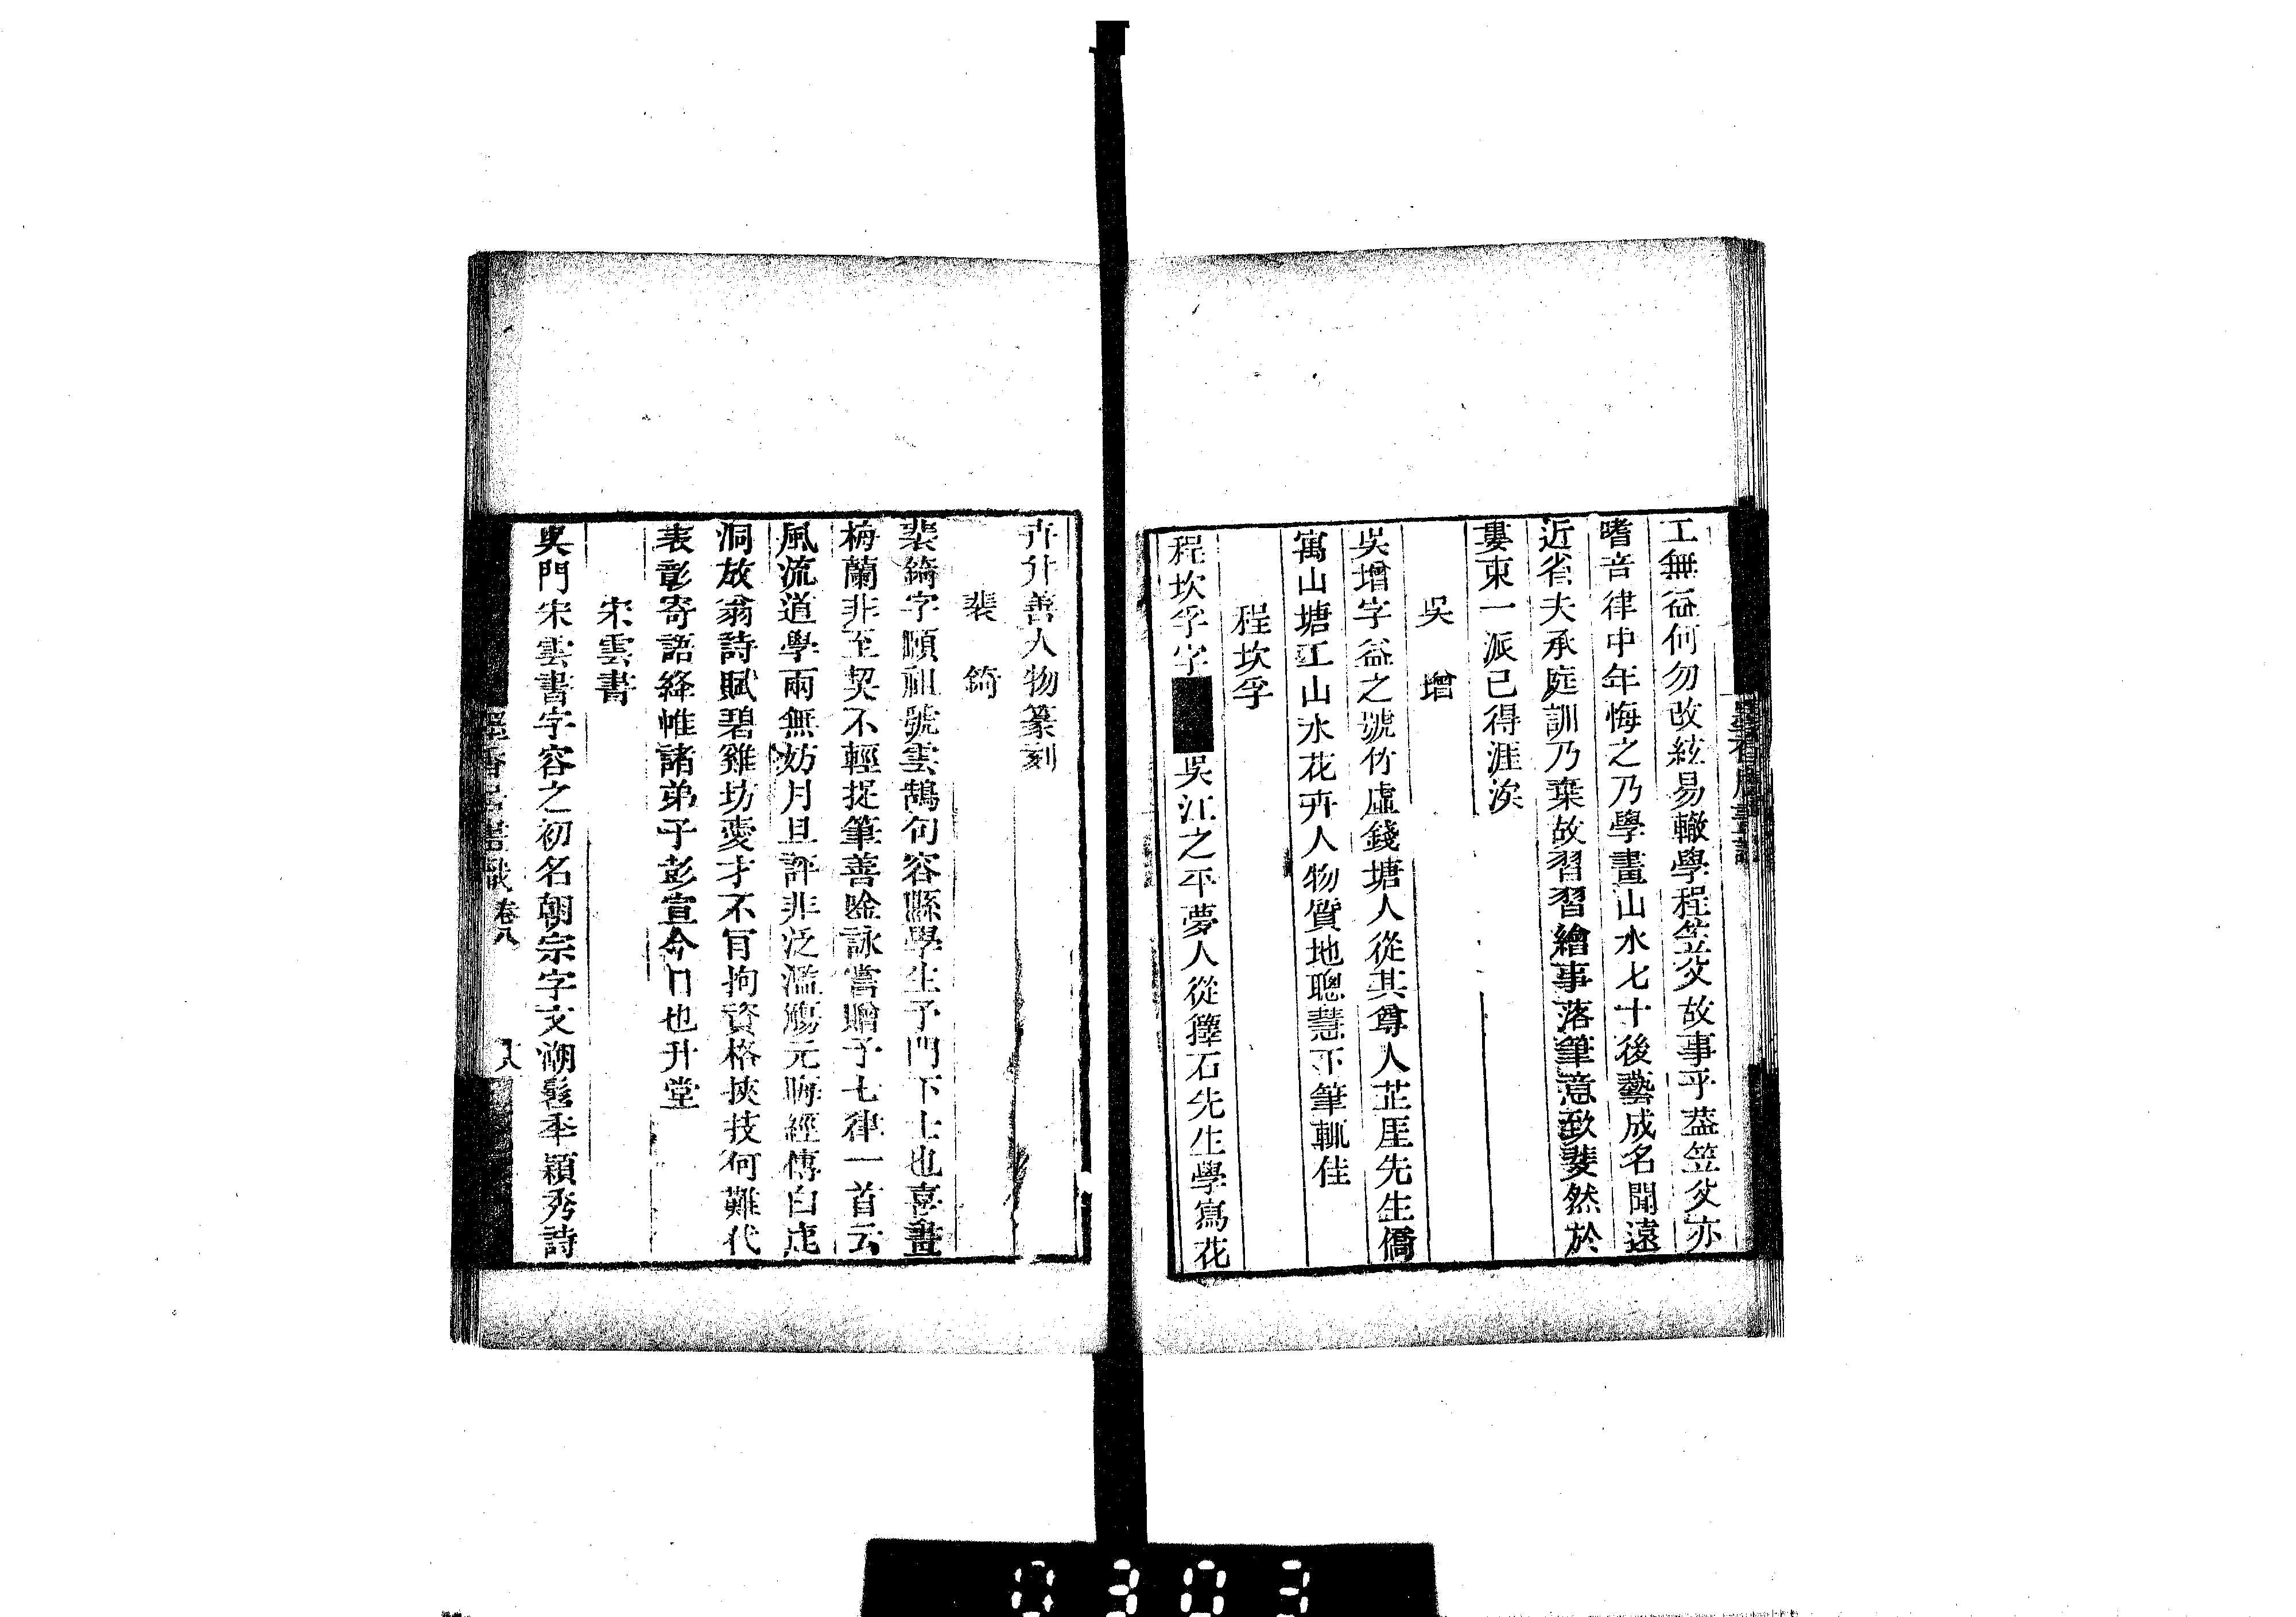 工無益何勿改絃易轍學程笠汝故事乎葢笠汝亦
嗜音律中年悔之乃學畫山水七十後藝成名聞遠
近省夫承庭訓乃棄故習習繪事落筆意致斐然於
婁東一派已得涯涘
吳增
吳增字益之號竹虛錢塘人從其尊人芷厓先生僑
寓山塘工山水花卉人物質地聰慧下筆輒佳
程坎孚
程坎孚字 吳江之平夢人從籜石先生學寫花
卉幷善人物篆刻
裴錡
裴錡字頤祖號雲鵠句容縣學生予門下士也喜畫
梅蘭非至契不輕捉筆善唫詠嘗贈予七律一首云
風流道學兩無妨月旦評非泛濫觴元晦經傳白鹿
洞放翁詩賦碧雞坊愛才不肎拘資格挾技何難代
表彰寄語絳帷諸弟子彭宣今日也升堂
宋雲書
吳門宋雲書字容之初名朝宗字文潮髫年穎秀詩
墨香居畫識 卷八
十八
0303